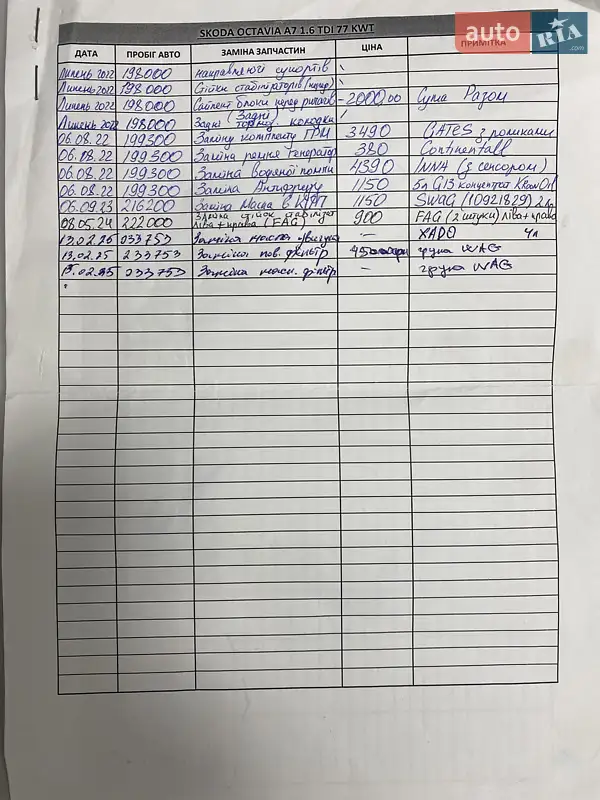 SKODA OCTAVIA A7 1.6 TDI 77 KWT
auto RIA .com
ДАТА ПРОБІГ АВТО ЗАМІНА ЗАПЧАСТИН ЦІНА ПРИМІТКА
Липень 2022 198000 направляючі супортів
Липень 2022 198000 Стійки стабілізаторів (перед)
Липень 2022 198000 Сайлент блоки перед ричагов -2000 00 Сума Разом
Липень 2022 198000 Задні (Задні) колодки
06.08.22 199300 Заміну комплекту ГРМ 3490 GATES з роликами
06.08.22 199300 Заміна ремня генератор 380 Continentall
06.08.22 199300 Заміна водяної помпи 4390 INNA (з сенсором)
06.08.22 199300 Заміна Антифризу 1150 5л G13 концентрат
06.09.23 216200 Заміна Масла в КПП 1150 SWAG (10921829) 2л
08.05.24 222000 Заміна стійок стабілізат ліво+право (FAG) 900 FAG (2 штуки) ліво+право
13.02.25 233753 Замєна масла двигуна — XADO 4л
13.02.25 233753 Замєна пов. фільтр група WAG
13.02.25 233753 Замєна масл. фільтр — група WAG